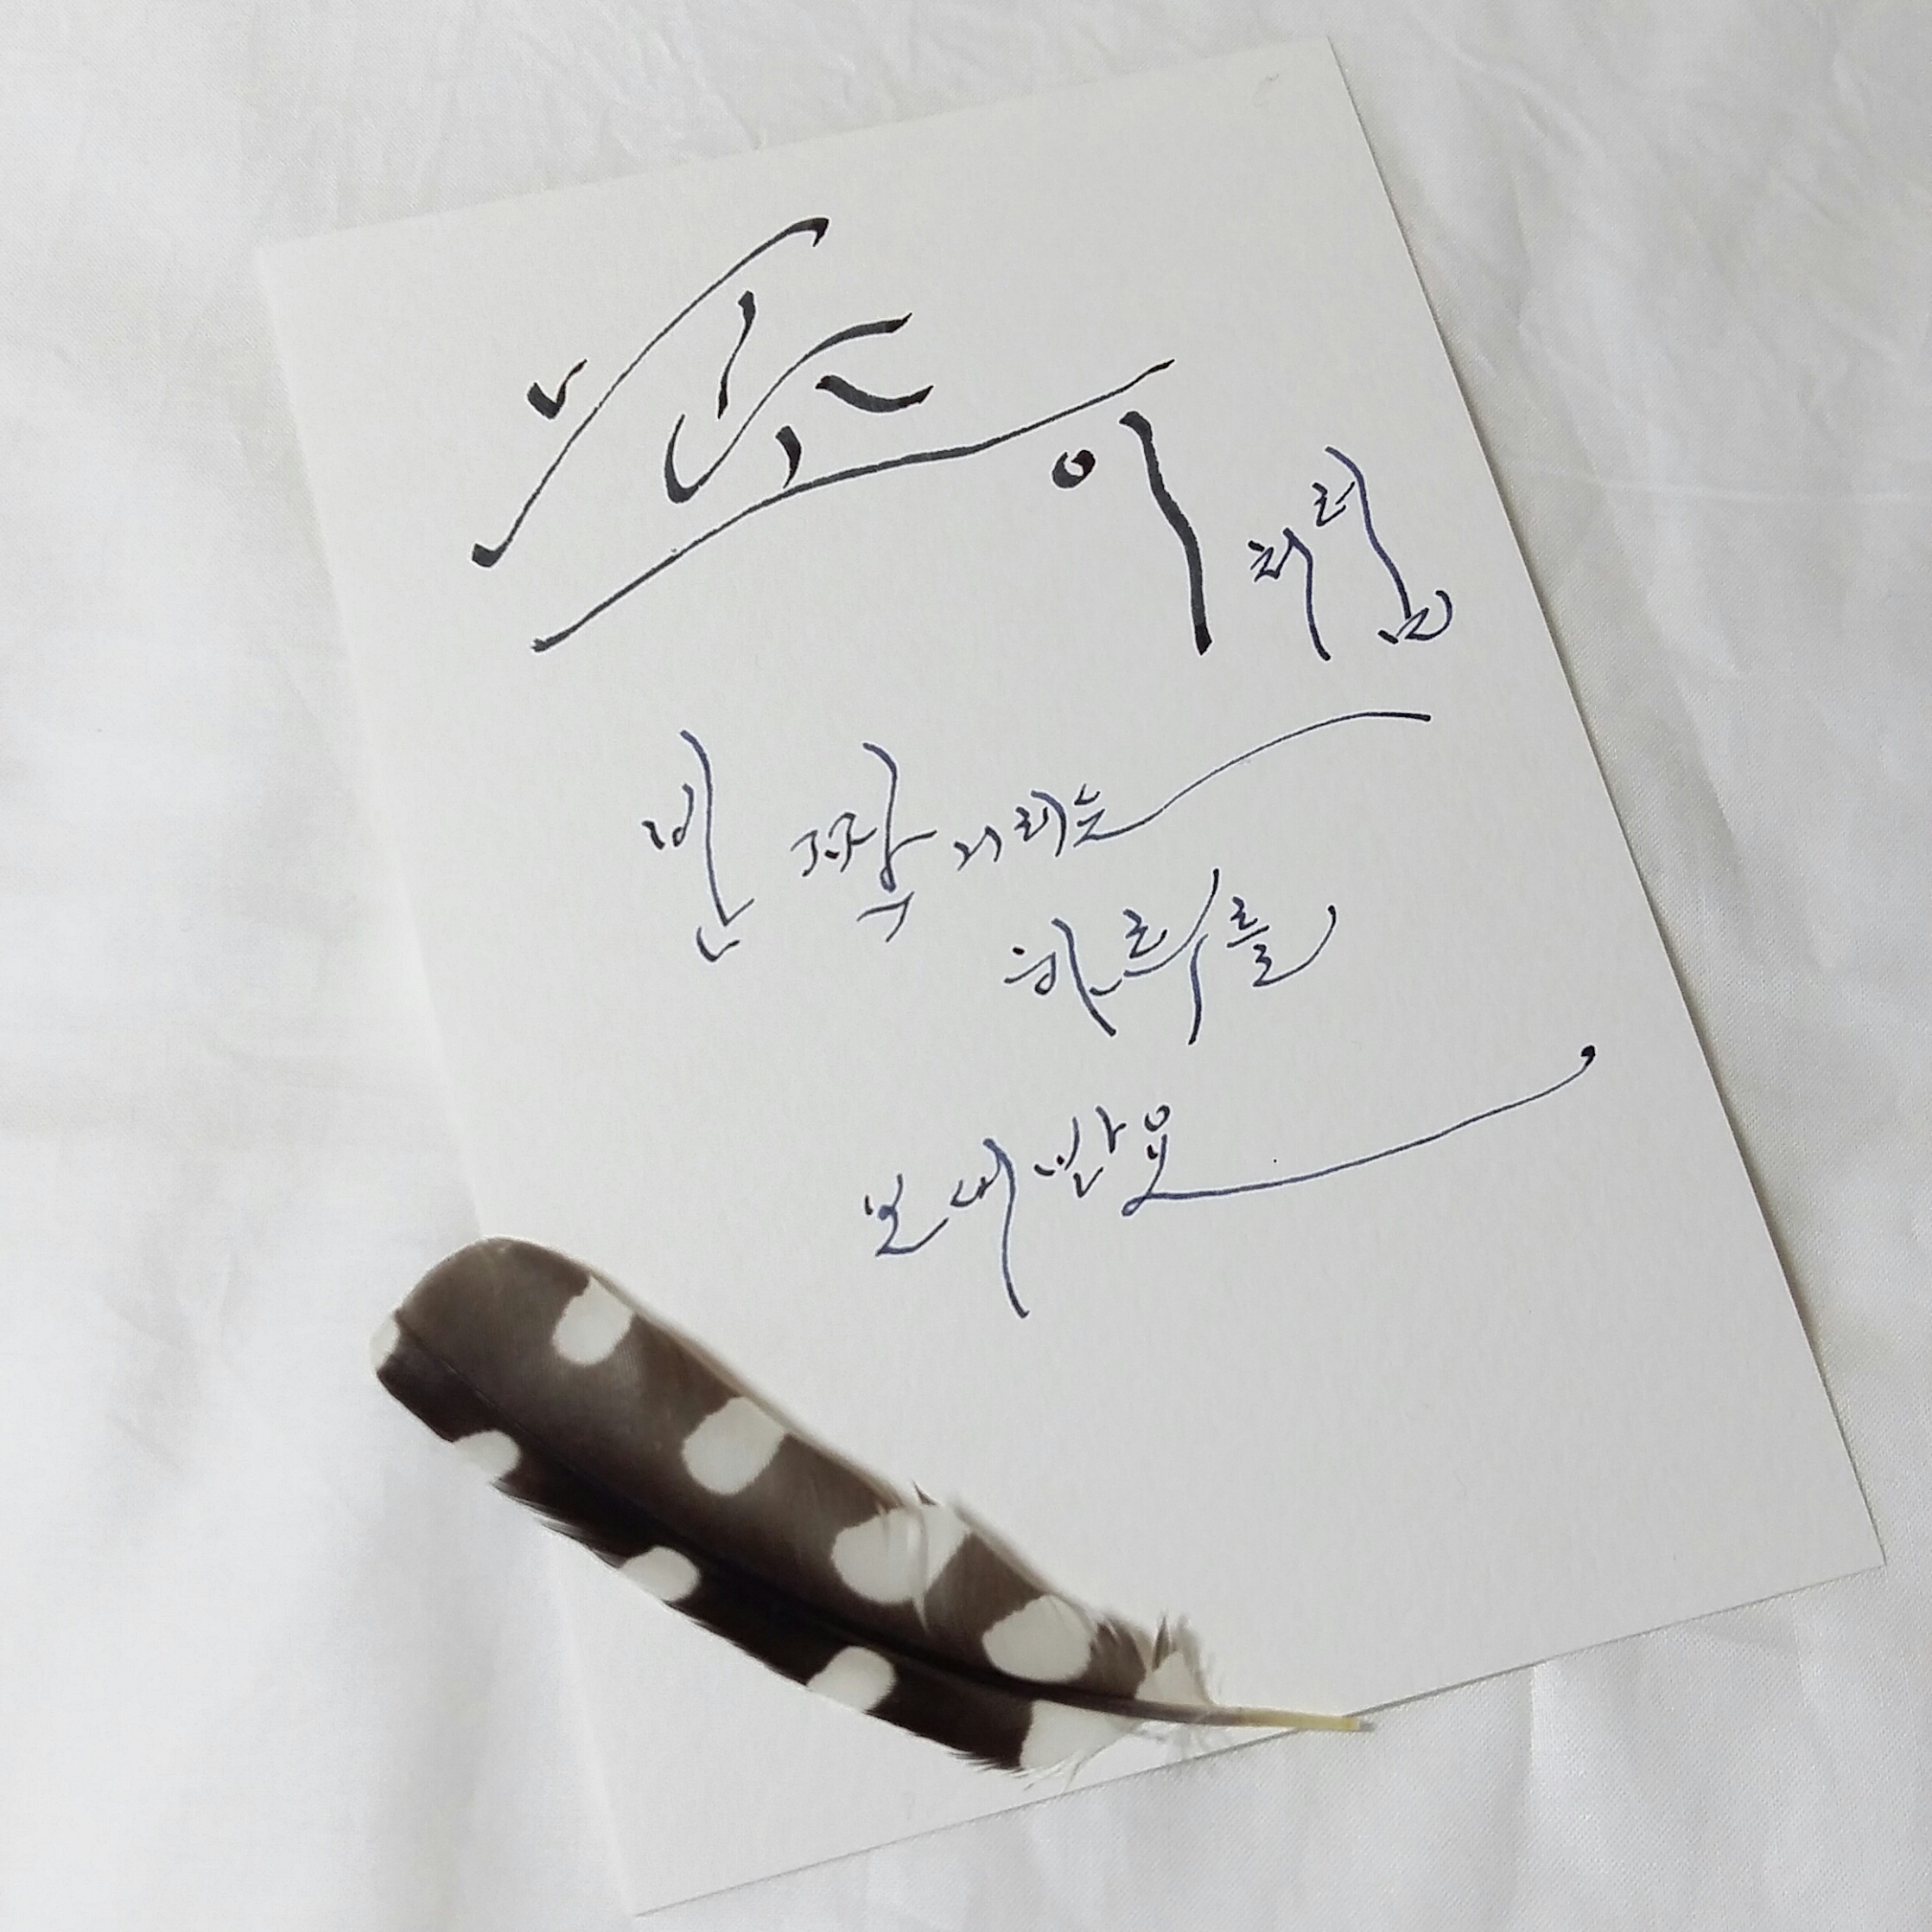 처럼
반짝거리는
하루를
보내봐요